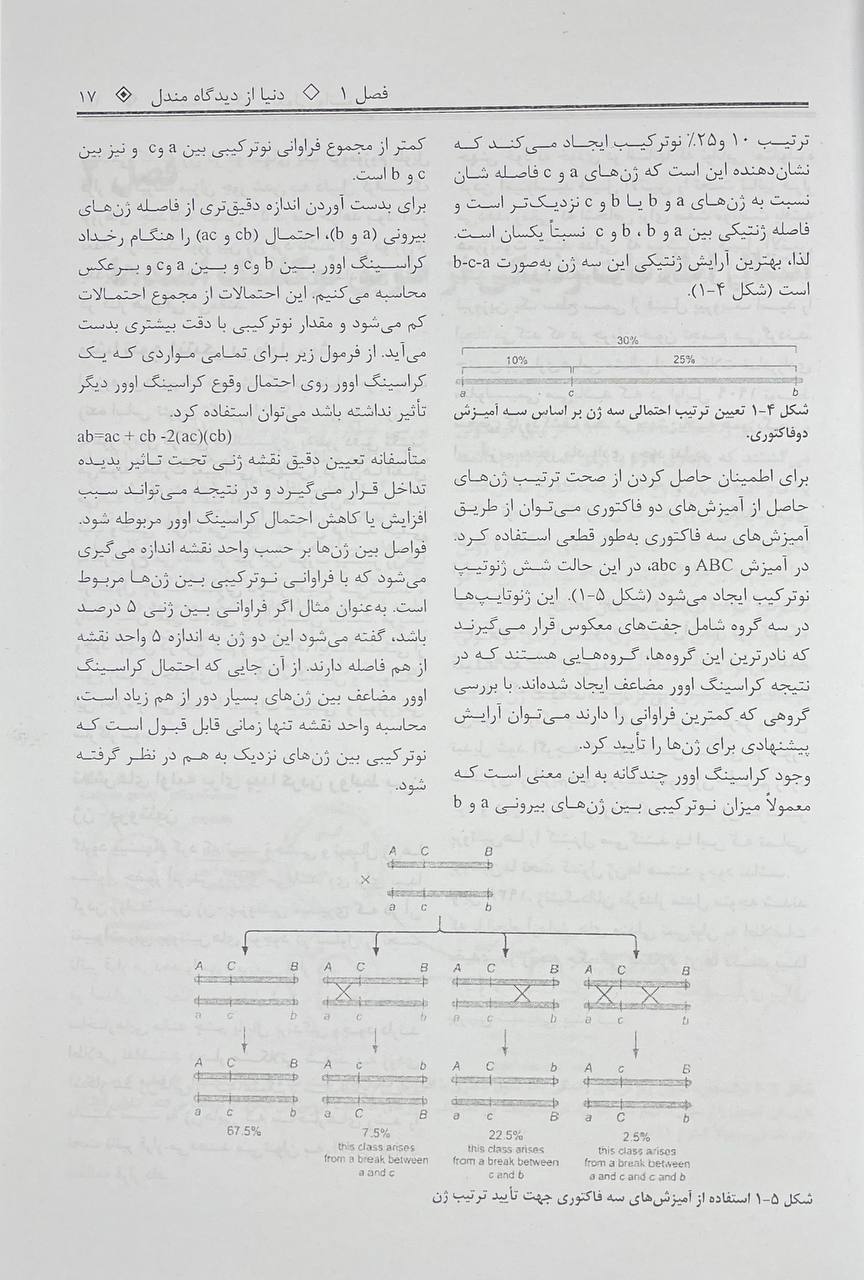 فصل ۱ ◇ دنیا از دیدگاه مندل ◈ ۱۷
ترتیب ۱۰ و۲۵٪ نوترکیب ایجاد می‌کند که
نشان‌دهنده این است که ژن‌های a و c فاصله شان
نسبت به ژن‌های a و b یا b و c نزدیک‌تر است و
فاصله ژنتیکی بین a و b ، b و c نسبتاً یکسان است.
لذا، بهترین آرایش ژنتیکی این سه ژن به‌صورت b-c-a
است (شکل ۴-۱).
30%
10% 25%
a c b
شکل ۴-۱ تعیین ترتیب احتمالی سه ژن بر اساس سه آمیزش
دوفاکتوری.
برای اطمینان حاصل کردن از صحت ترتیب ژن‌های
حاصل از آمیزش‌های دو فاکتوری می‌توان از طریق
آمیزش‌های سه فاکتوری به‌طور قطعی استفاده کرد.
در آمیزش ABC و abc، در این حالت شش ژنوتیپ
نوترکیب ایجاد می‌شود (شکل ۵-۱). این ژنوتایپ‌ها
در سه گروه شامل جفت‌های معکوس قرار می‌گیرند
که نادرترین این گروه‌ها، گروه‌هایی هستند که در
نتیجه کراسینگ اوور مضاعف ایجاد شده‌اند. با بررسی
گروهی که کمترین فراوانی را دارند می‌توان آرایش
پیشنهادی برای ژن‌ها را تأیید کرد.
وجود کراسینگ اوور چندگانه به این معنی است که
معمولاً میزان نوترکیبی بین ژن‌های بیرونی a و b
کمتر از مجموع فراوانی نوترکیبی بین a وc و نیز بین
c و b است.
برای بدست آوردن اندازه دقیق‌تری از فاصله ژن‌های
بیرونی (a و b)، احتمال (cb و ac) را هنگام رخداد
کراسینگ اوور بین b وc و بین a وc و برعکس
محاسبه می‌کنیم. این احتمالات از مجموع احتمالات
کم می‌شود و مقدار نوترکیبی با دقت بیشتری بدست
می‌آید. از فرمول زیر برای تمامی مواردی که یک
کراسینگ اوور روی احتمال وقوع کراسینگ اوور دیگر
تأثیر نداشته باشد می‌توان استفاده کرد.
ab=ac + cb -2(ac)(cb)
متأسفانه تعیین دقیق نقشه ژنی تحت تاثیر پدیده
تداخل قرار می‌گیرد و در نتیجه می‌تواند سبب
افزایش یا کاهش احتمال کراسینگ اوور مربوطه شود.
فواصل بین ژن‌ها بر حسب واحد نقشه اندازه می‌گیری
می‌شود که با فراوانی نوترکیبی بین ژن‌ها مربوط
است. به‌عنوان مثال اگر فراوانی بین ژنی ۵ درصد
باشد، گفته می‌شود این دو ژن به اندازه ۵ واحد نقشه
از هم فاصله دارند. از آن جایی که احتمال کراسینگ
اوور مضاعف بین ژن‌های بسیار دور از هم زیاد است،
محاسبه واحد نقشه تنها زمانی قابل قبول است که
نوترکیبی بین ژن‌های نزدیک به هم در نظر گرفته
شود.
A C B
×
a c b
A C B A C B A C B A C B
a c b a c b a c b a c b
A C B A c b A C b A c B
a c b a C B a c B a C b
67.5% 7.5% 22.5% 2.5%
this class arises this class arises this class arises
from a break between from a break between from a break between
a and c c and b a and c and c and b
شکل ۵-۱ استفاده از آمیزش‌های سه فاکتوری جهت تأیید ترتیب ژن